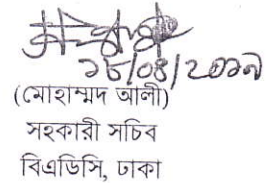 ১৮/০৪/২০১৭
(মোহাম্মদ আলী)
সহকারী সচিব
বিএডিসি, ঢাকা